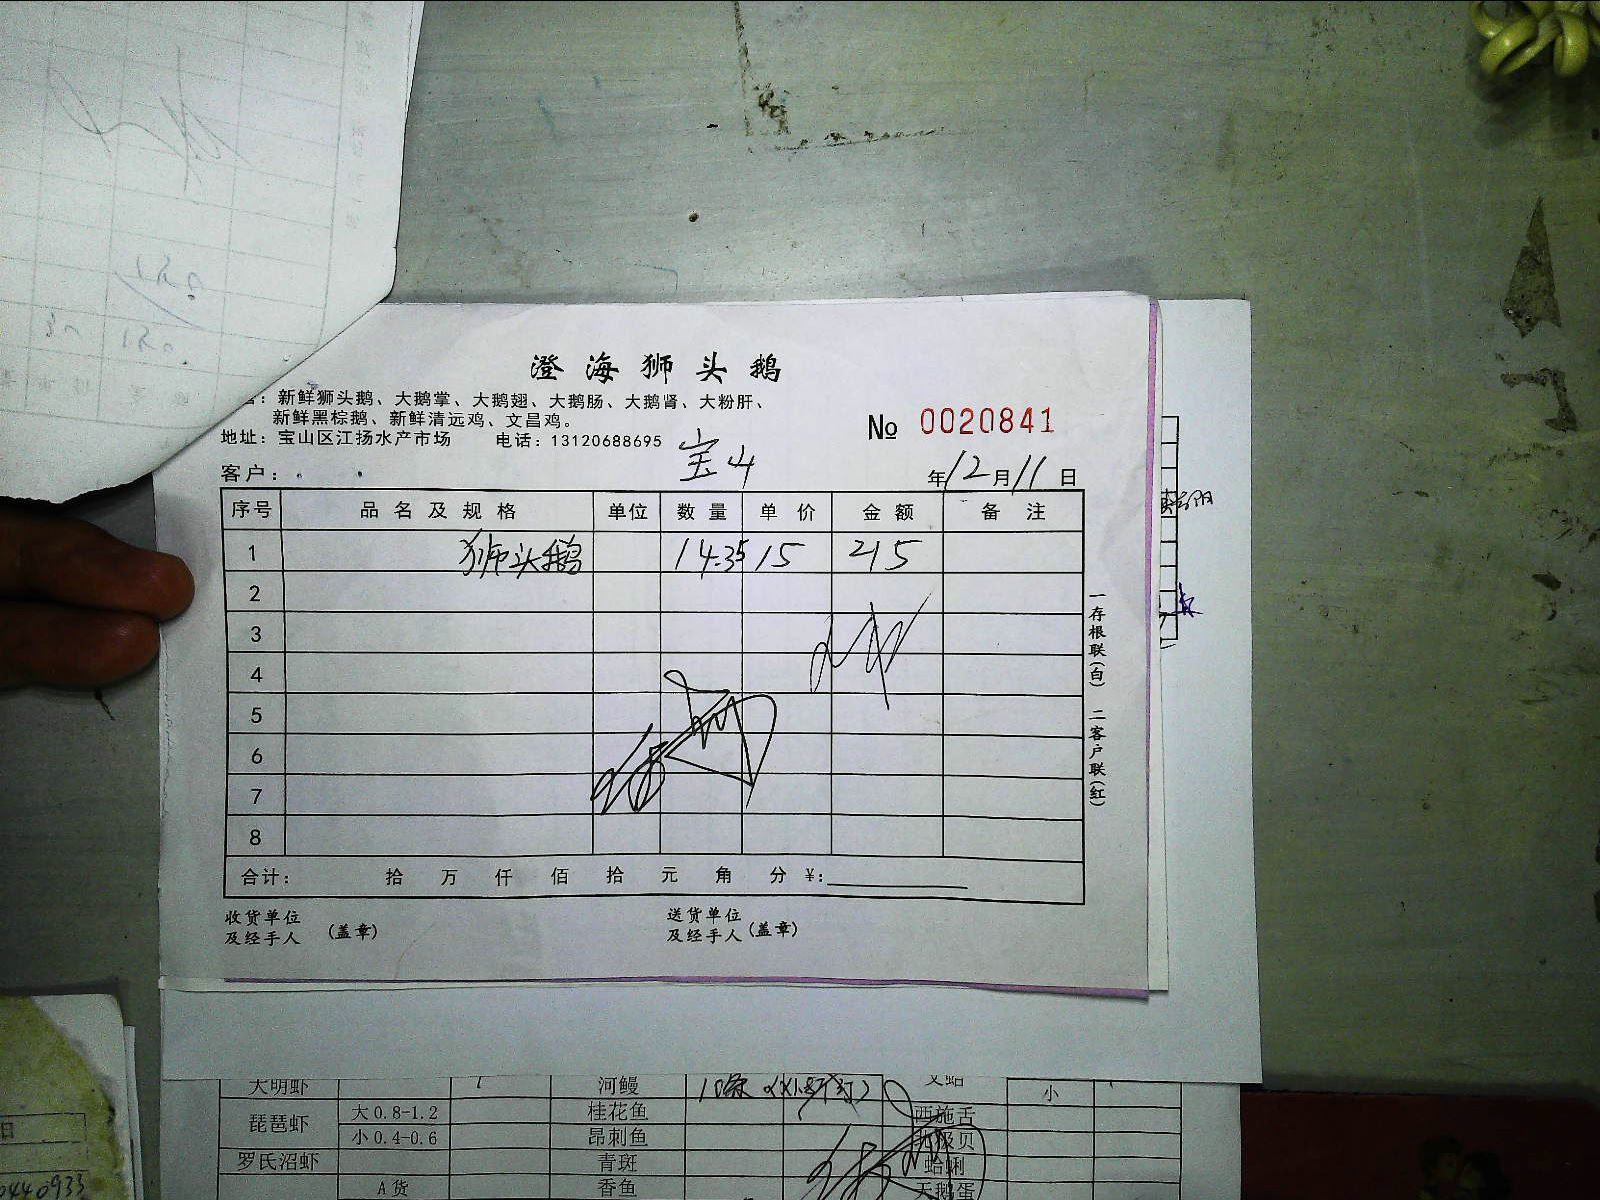 澄海狮头鹅
：新鲜狮头鹅、大鹅掌、大鹅翅、大鹅肠、大鹅肾、大粉肝、
新鲜黑棕鹅、新鲜清远鸡、文昌鸡。
地址：宝山区江扬水产市场 电话：13120688695
№ 0020841
宝山
客户： 年12月11日
序号 品名及规格 单位 数量 单价 金额 备注
1 狮头鹅 14.35 15 215
2
3
4
5
6
7
8
合计： 拾 万 仟 佰 拾 元 角 分 ¥：
收货单位 送货单位
及经手人 (盖章) 及经手人 (盖章)
一存根联(白) 二客户联(红)
大明虾 河鳗 文蛤 小
琵琶虾 大0.8-1.2 桂花鱼 西施舌
小0.4-0.6 昂刺鱼 北极贝
罗氏沼虾 青斑 蛤蜊
A货 香鱼 天鹅蛋
日
0440933